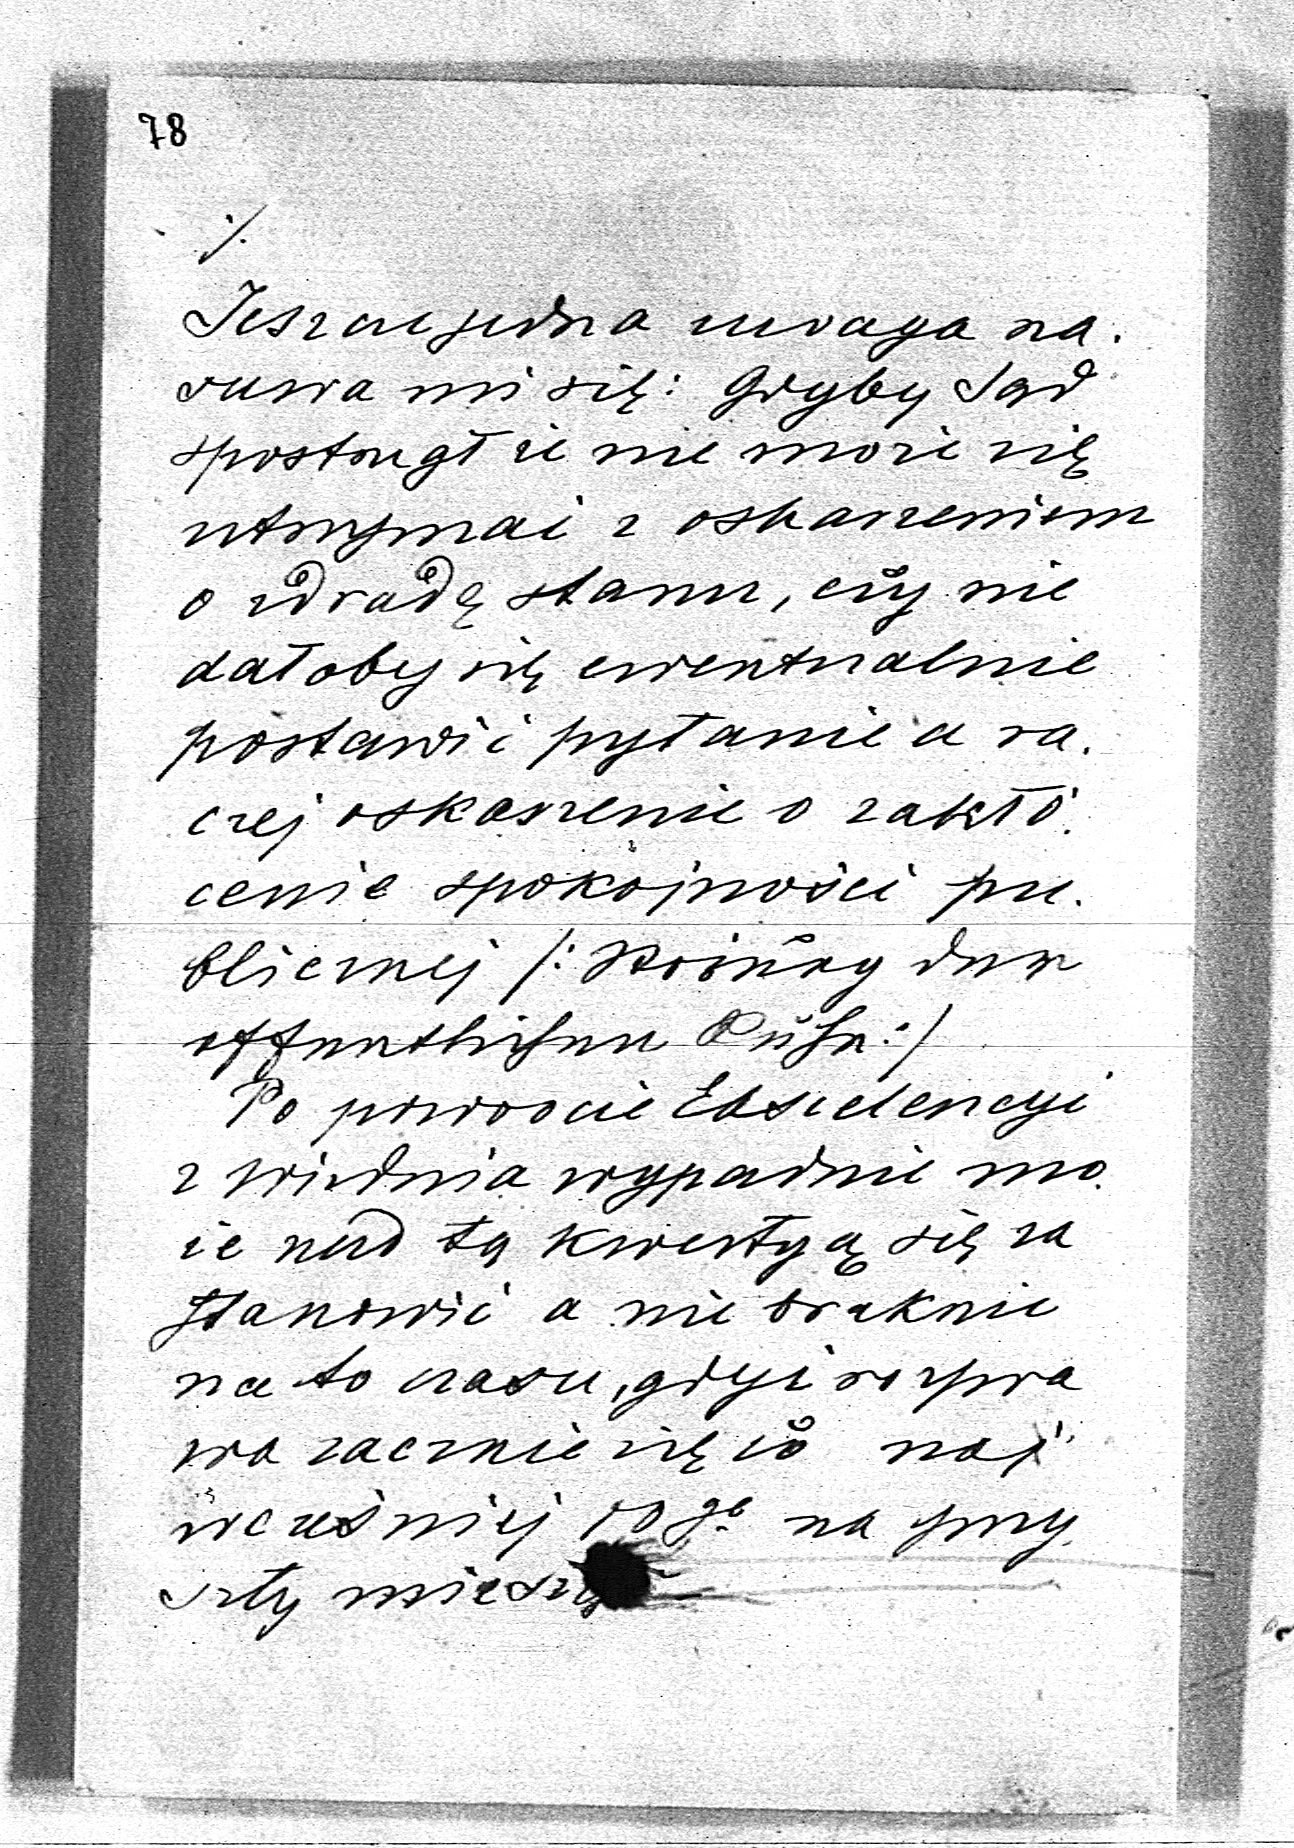 78
·/.
Jeszcze jedna uwaga na.
suwa mi się: Gdyby Sąd
spostrzegł że nie może się
utrzymać z oskarzeniem
o zdradę stanu, czy nie
dałoby się ewentualnie
postawić pytanie a ra.
czej oskarzenie o zakłó.
cenie spokojności pu.
blicznej /: Störung der
öffentlichen Ruhe :/
Po powrocie Excelencyi
z Wiednia wypadnie mo.
że nad tą kwestyą się za
stanowić a nie braknie
na to czasu, gdyż rozpra
wa zacznie się naj
wcześniej 10go na przy.
szły